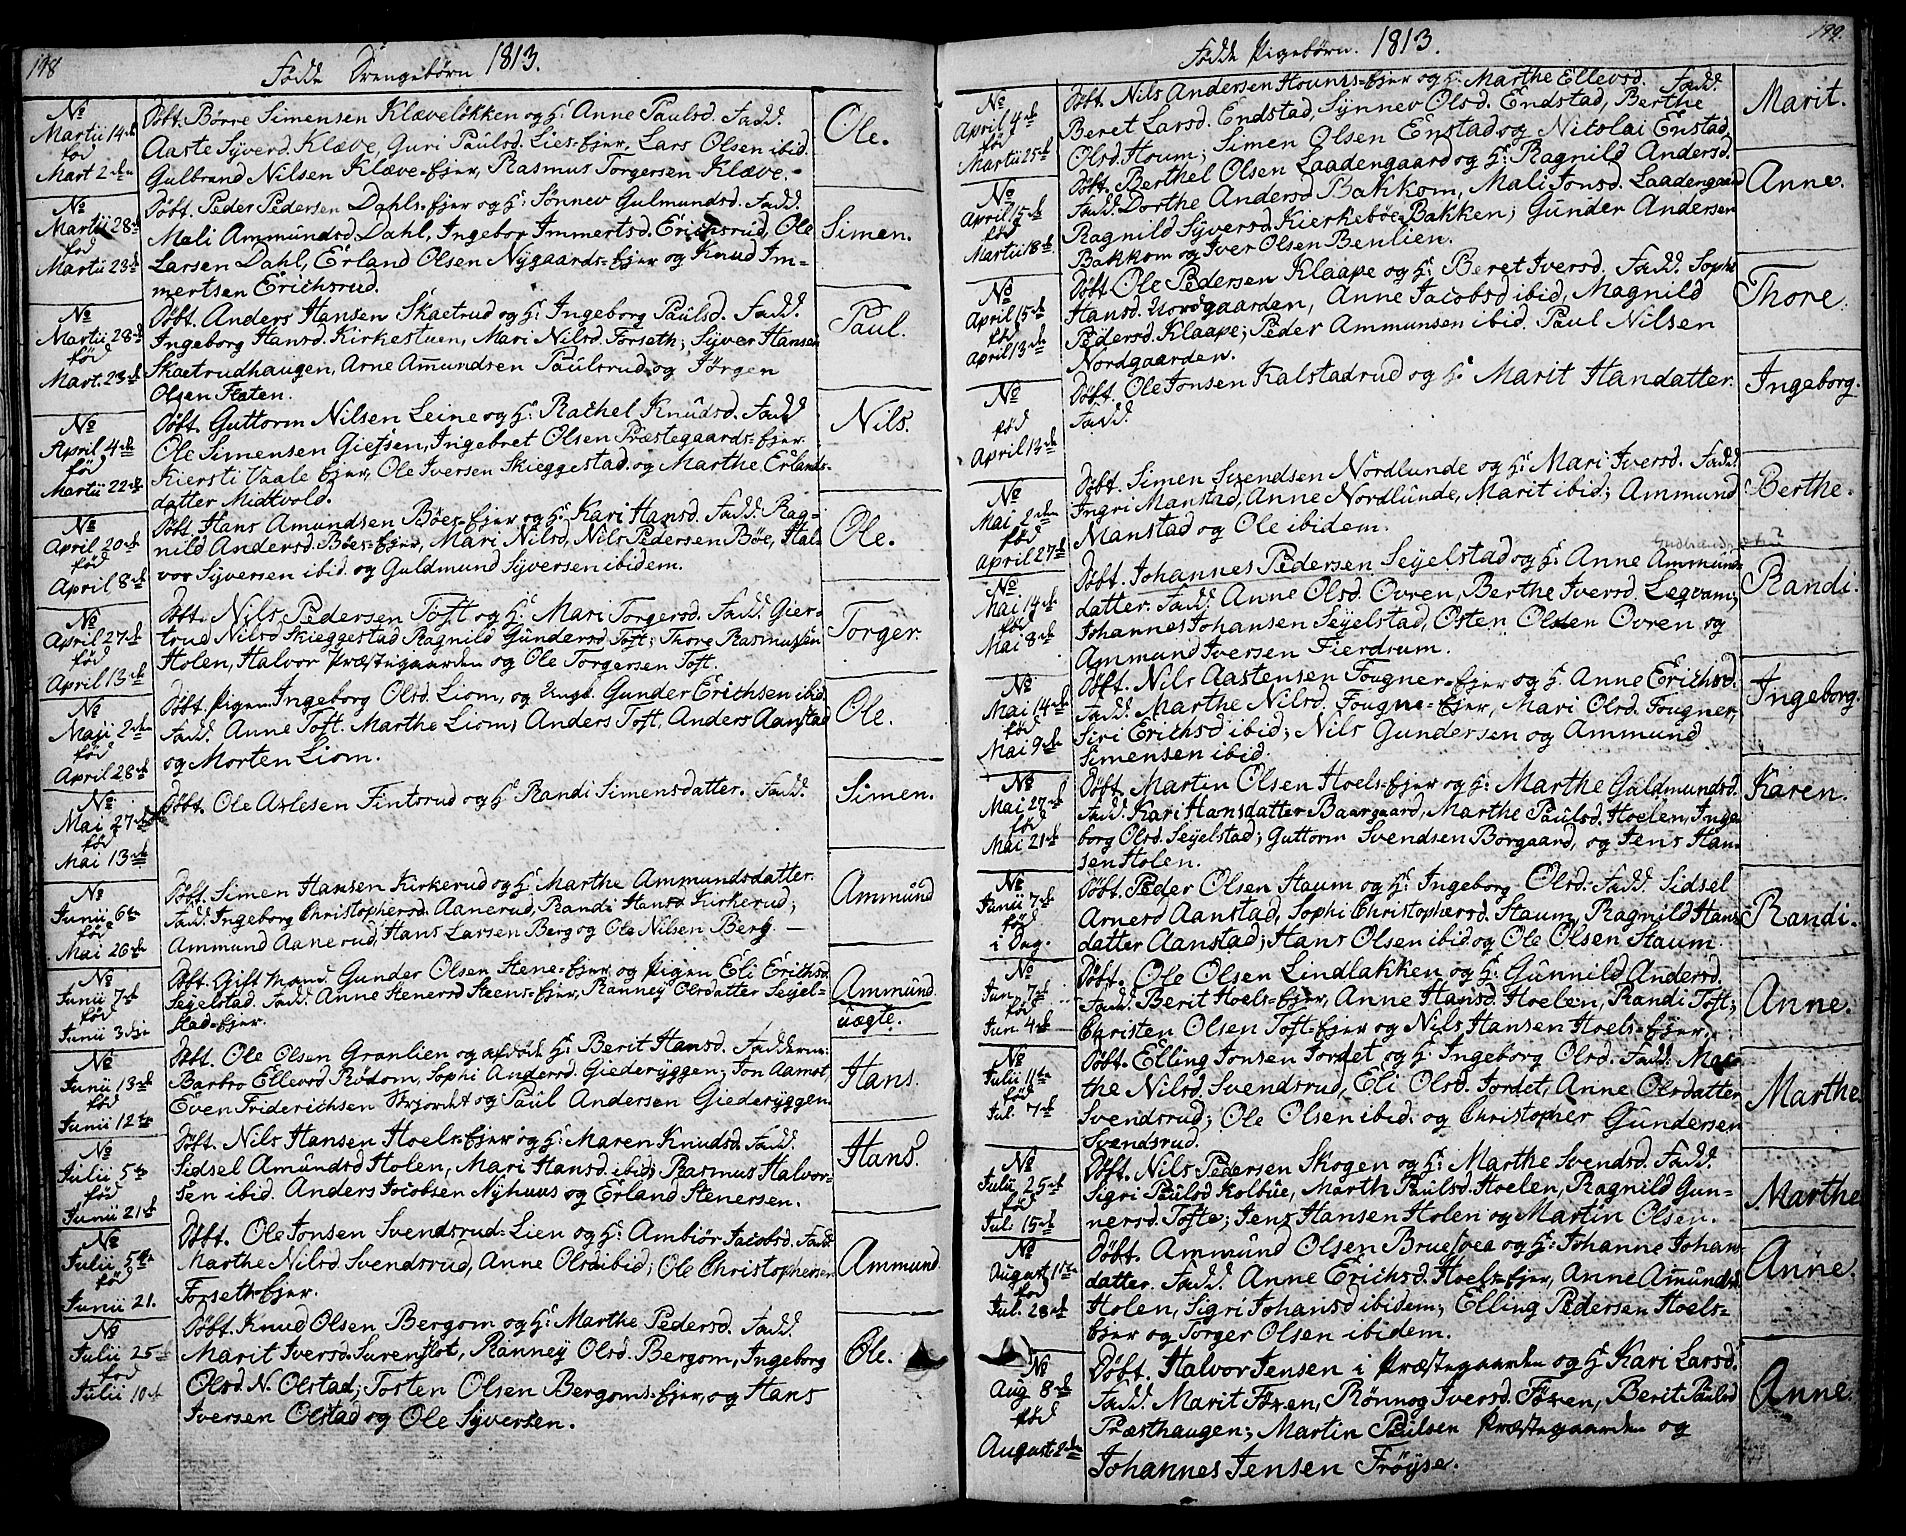 198
Fødde Drengebørn 1813.
No
Martii 14de
fød
Mart 2den
Døbt. Børre Simensen Klæveløkken og H. Anne Paulsd. Fadd.
Aaste Syverd. Klæve, Guri Paulsd. Lies-Ejer, Lars Olsen ibid.
Gulbrand Nilsen Klæve-Ejer, Rasmus Torgersen Klæve.
Ole.
No
Martii 28de
fød
Martii 23de
Døbt. Peder Pedersen Dahls-Ejer og H. Sønnev Gulmundsd. Fadd.
Mali Ammundsd Dahl, Ingebor Immertsd. Erichsrud, Ole
Larsen Dahl, Erland Olsen Nygaards-Ejer og Knud Im-
mertsen Erichsrud.
Simen.
No
Martii 28de
fød
Mart. 23de
Døbt. Anders Hansen Skaetrud og H. Ingeborg Paulsd. Fadd.
Ingeborg Hansd. Kirkestuen, Mari Nilsd. Forseth; Syver Hansen
Skaetrudhaugen, Arne Amundsen Paulsrud og Jørgen
Olsen Flaten.
Paul.
No
April 4de
fød
Martii 22de
Døbt. Guttorm Nilsen Leine og H. Rachel Knudsd. Fadd.
Ole Simensen Gielsen, Ingebret Olsen Præstegaards-Ejer.
Kiersti Vaale Ejer, Ole Iversen Skieggestad og Marthe Erlands-
datter Midtvold.
Nils.
No
April 20de
fød
April 8de
Døbt. Hans Amundsen Bøes-Ejer og H. Kari Hansd. Fadd. Rag-
nild Andersd. Bøes-Ejer, Mari Nilsd, Nils Pedersen Bøe, Hal-
vor Syversen ibid. og Guldmund Syversen ibidem.
Ole.
No
April 27de
fød
April 13de
Døbt. Nils Pedersen Toft og H. Mari Torgersd. Fadd. Gier-
trud Nilsd Skieggestad Ragnild Gundersd Toft; Thore Rasmussen
Holen, Halvor Præstegaarden og Ole Torgersen Toft.
Torger.
No
Maji 2den
fød
April 28de
Døbt. Pigen Ingeborg Olsd. Liom, og Ungk. Gunder Erichsen ibid
Fadd. Anne Toft. Marthe Liom; Anders Toft. Anders Aanstad
og Morten Liom.
Ole.
No
Mai 27de
fød
Mai 13de
Døbt. Ole Aslesen Fintsrud og H. Randi Simensdatter. Fadd.
Simen.
No
Junii 6te
fød
Mai 26de
Døbt. Simen Hansen Kirkerud og H. Marthe Ammundsdatter.
Fadd. Ingeborg Christophersd. Aanerud, Randi Hansd Kirkerud;
Ammund Aanerud, Hans Larsen Berg og Ole Nilsen Berg
Ammund
No
Junii 7de
fød
Junii 3die
Døbt. Gift Mand Gunder Olsen Stene-Ejer og Pigen Eli Erichsd.
Seyelstad. Fadd. Anne Stenersd Steens-Ejer, Ranney Olsdatter Seyel-
stad-Ejer.
Ammund.
uægte.
No
Junii 13de
fød
Junii 12te
Døbt. Ole Olsen Granlien og afdøde H. Berit Hansd. Fadderne:
Barbro Ellevsd Rødom, Sophi Andersd. Giederyggen; Jon Aamot
Even Friderichsen Skjordet og Paul Andersen Giederyggen
Hans.
No
Julii 5te
fød
Junii 21de
Døbt. Nils Hansen Hoels-Ejer og H. Maren Knudsd. Fadd.
Sidsel Amundsd Holen, Mari Hansd. ibid; Rasmus Halvor-
sen ibid. Anders Jacobsen Nyhuus og Erland Stenersen.
Hans.
No
Julii 5te
fød
Junii 21.
Døbt. Ole Jonsen Svendsrud-Lien og H. Ambiør Jacobsd. Fadd.
Marthe Nilsd Svendsrud, Anne Olsd ibid; Ole Christophersen
Forseth-Ejer.
Ammund.
No
Julii 25
fød
Julii 10de
Døbt. Knud Olsen Bergom og H. Marthe Pedersd. Fadd.
Marit Iversd. Surenflot, Ranney Olsd. Bergom, Ingeborg
Olsd. N. Olstad; Tosten Olsen Bergoms-Ejer, og Hans
Iversen Olstad og Ole Syversen.
Ole.
199.
Fødde Pigebørn. 1813.
No
April 4de
fød
Martii 25de
Døbt. Nils Andersen Houms-Ejer og H. Marthe Ellevsd. Fadd.
Beret Larsd. Endstad, Synnev Olsd. Endstad, Berthe
Olsd. Houm; Simen Olsen Enstad og Nicolai Enstad.
Marit.
No
April 15de
fød
Martii 18de
Døbt. Berthel Olsen Laadengaard og H. Ragnild Andersd.
Fadd. Dorthe Andersd Bakkom, Mali Jonsd. Laadengaard
Ragnild Syversd. Kierkebøe-Bakken; Gunder Andersen
Bakkom og Iver Olsen Benlien.
Anne.
No
April 15de
fød
April 13de
Døbt. Ole Pedersen Klaape og H. Beret Iversd. Fadd. Sophi
Hansd. Nordgaarden, Anne Jacobsd ibid, Magnild
Pedersd. Klaape; Peder Ammunsen ibid. Paul Nilsen
Nordgaarden.
Thore.
No
fød
April 13de
Døbt. Ole Jonsen Kalstadrud og H. Marit Handatter.
Fadd.
Ingeborg.
No
Mai 2den
fød
April 27de
Døbt. Simen Svendsen Nordlunde og H. Mari Iversd. Fadd.
Ingri Manstad, Anne Nordlunde, Marit ibid; Ammund
Manstad og Ole ibidem.
Berthe.
No
Mai 14de
fød
Mai 8de
Døbt. Johannes Pedersen Seyelstad og H. Anne Ammunds-
datter. Fadd. Anne Olsd. Ovren, Berthe Iversd. Legvam;
Johannes Johansen Seyelstad, Osten Olsen Ovren og
Ammund Iversen Fierdrum.
Randi.
No
Mai 14de
fød
Mai 9de
Døbt. Nils Aastensen Fougner-Ejer og H. Anne Erichsd.
Fadd. Marthe Nilsd. Fougne-Ejer, Mari Olsd. Fougner,
Siri Erichsd ibid; Nils Gundersen og Ammund
Simensen ibid.
Ingeborg.
No
Mai 27de
fød
Mai 21de
Døbt. Martin Olsen Hoels-Ejer og H. Marthe Guldmundsd.
Fadd. Kari Hansdatter Baargaard, Marthe Paulsd. Hoelen, Inge-
borg Olsd. Seyelstad; Guttorm Svendsen Borgaard, og Jens Han-
sen Holen.
Karen.
No
Junii 7de
fød
i Dag.
Døbt. Peder Olsen Staum og H. Ingeborg Olsd. Fadd. Sidsel
Arnesd Aanstad, Sophi Christophersd. Staum, Ragnild Hans-
datter Aanstad; Hans Olsen ibid og Ole Olsen Staum.
Randi.
No
Jun. 7de
fød
Jun 4de
Døbt. Ole Olsen Lindlakken og H. Gunnild Andersd.
Fadd. Berit Hoels-Ejer, Anne Hansd. Hoelen, Randi Toft;
Christen Olsen Toft-Ejer og Nils Hansen Hoels-Ejer.
Anne.
No
Julii 11te
fød
Jul. 7de
Døbt. Elling Jonsen Jordet og H. Ingeborg Olsd. Fadd. Mar-
the Nilsd. Svendsrud, Eli Olsd. Jordet, Anne Olsdatter
Svendsrud; Ole Olsen ibid. og Christopher Gundersen
Svendsrud.
Marthe
No
Julii 25de
fød
Jul. 15de
Døbt. Nils Pedersen Skogen og H. Marthe Svendsd. Fadd.
Sigri Paulsd Kolbue, Marth Paulsd. Hoelen, Ragnild Gun-
nersd. Tofte; Jens Hansen Holen og Martin Olsen.
Marthe
No
August 11te
fød
Jul. 28de
Døbt. Ammund Olsen Bruesvea og H. Johanne Johans-
datter. Fadd. Anne Erichsd. Hoels-Ejer, Anne Amundsd.
Holen, Sigri Johansd ibidem; Elling Pedersen Hoels-
Ejer og Torger Olsen ibidem.
Anne.
No
Aug 8de
fød
August 2den
Døbt. Halvor Jensen i Præstegaarden og H. Kari Larsd.
Fadd. Marit Føren, Rønnog Iversd. Føren, Berit Paulsd
Præsthaugen; Martin Paulsen Præstegaarden og
Johannes Jensen Frøyse.
Anne.